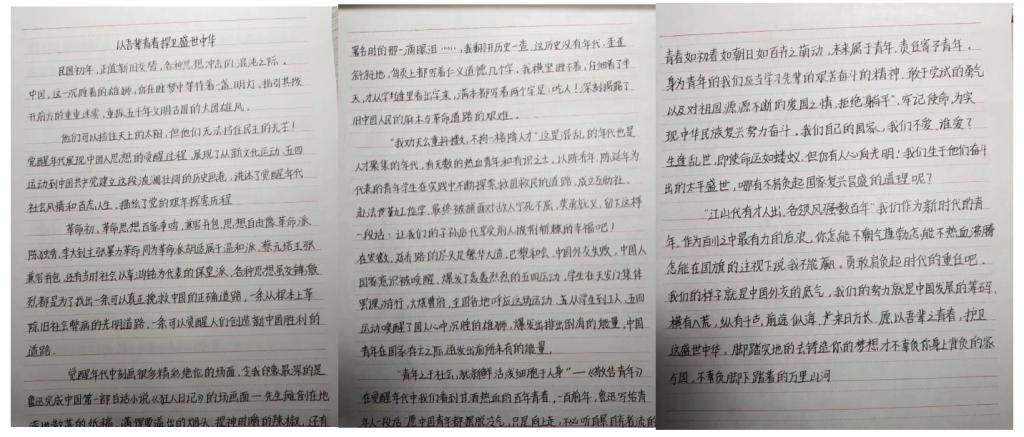 以吾辈青春 捍卫盛世中华
民国初年,正值新旧交替,各种思想冲击的混沌之际。
中国,这一沉睡着的雄狮,仍在睡梦中等待着一盏明灯,指引其拨
开前方的重重迷雾,重振五千年文明古国的大国雄风。
他们可以挡住天上的太阳,但他们无法挡住民主的光芒!
觉醒年代展现中国人思想的觉醒过程,展现了从新文化运动、五四
运动到中国共产党建立这段波澜壮阔的历史画卷,讲述了觉醒年代
社会风情和百态人生,描绘了党的艰辛探索历程
革命初,革命思想百家争鸣,兼容并包,思想自由
陈独秀,李大钊主张暴力革命 同为革命派胡适属于温和派,蔡元培主张
兼容并包,还有当时社会从辜鸿铭为代表的保皇派,各种思想虽交锋激
烈,都是为了找出一条可以真正挽救中国的正确道路,一条从根本上革
除旧社会弊病的光明道路,一条可以觉醒人们创造新中国胜利的
道路.
觉醒年代中刻画很多精彩绝伦的场面,令我印象最深的是
鲁迅完成中国第一部白话小说《狂人日记》的场画面一先生
署名时的那一滴眼泪……,我翻开历史一查,这历史没有年代,歪歪
斜斜地,每页上都写着仁义道德几个字,我横竖睡不着,仔细看了半
天,才从字缝里看出字来,满本都写着两个字是:吃人!深刻揭露了
旧中国人民的麻木与革命道路的艰难。
"我劝天公重抖擞,不拘一格降人才"这是混乱的年代也是
人才聚集的年代,有无数的热血青年和有识之士,以陈乔年,陈延年为
代表的青年学生在实践中不断探索救国救民的道路,成立互助社、
赴法世勤工俭学,最终被捕面对敌人宁死不屈,英勇就义,留下这样
一段话:让我们的子孙后代享受前人披荆斩棘的幸福吧!
在安徽,延乔路的尽头是繁华大道,巴黎和会,中国外交失败,中国人
国家意识被唤醒,爆发了轰轰烈烈的五四运动,学生在天安门集体
罢课,游行,火烧曹府,全国各地呼应这场运动,从学生到工人,五四
运动唤醒了国人心中沉睡的雄狮,爆发出排山倒海的能量,中国
青年在国家存亡之际,迸发出前所未有的能量。
"青年之于社会,犹新鲜活泼细胞于人身"——《敬告青年》
在觉醒年代中我们看到甘洒热血的百年青春,一百年前,鲁迅写给青
年人一段话:愿中国青年都摆脱冷气,只是向上走,不必听自暴自弃者流的
青春如初春如朝日如百卉之萌动,未来属于青年,责任寄予青年。
身为青年的我们应当学习先辈的艰苦奋斗的精神,敢于尝试的勇气
以及对祖国源源不断的爱国之情,拒绝"躺平",牢记使命,为实
现中华民族复兴努力奋斗。我们自己的国家,我们不爱,谁爱?
生逢乱世,即使命运如蝼蚁,但仍有人心向光明!我们生于他们奋斗
出的太平盛世,哪有不肩负起国家复兴昌盛的道理呢?
"江山代有才人出,各领风骚数百年"我们作为新时代的青
年,作为百川之中最有力的后浪,你怎能不朝气蓬勃怎能不热血沸腾
怎能在国旗的注视下说我不能赢,勇敢肩负起时代的重任吧,
我们的样子就是中国外交的底气,我们的努力就是中国发展的筹码,
横有八荒,纵有千古,前途似海,来日方长,愿以吾辈之青春,护卫
这盛世中华,脚踏实地的去铸造你的梦想,才不辜负你身上背负的家
与国,不辜负脚下踏着的万里山河